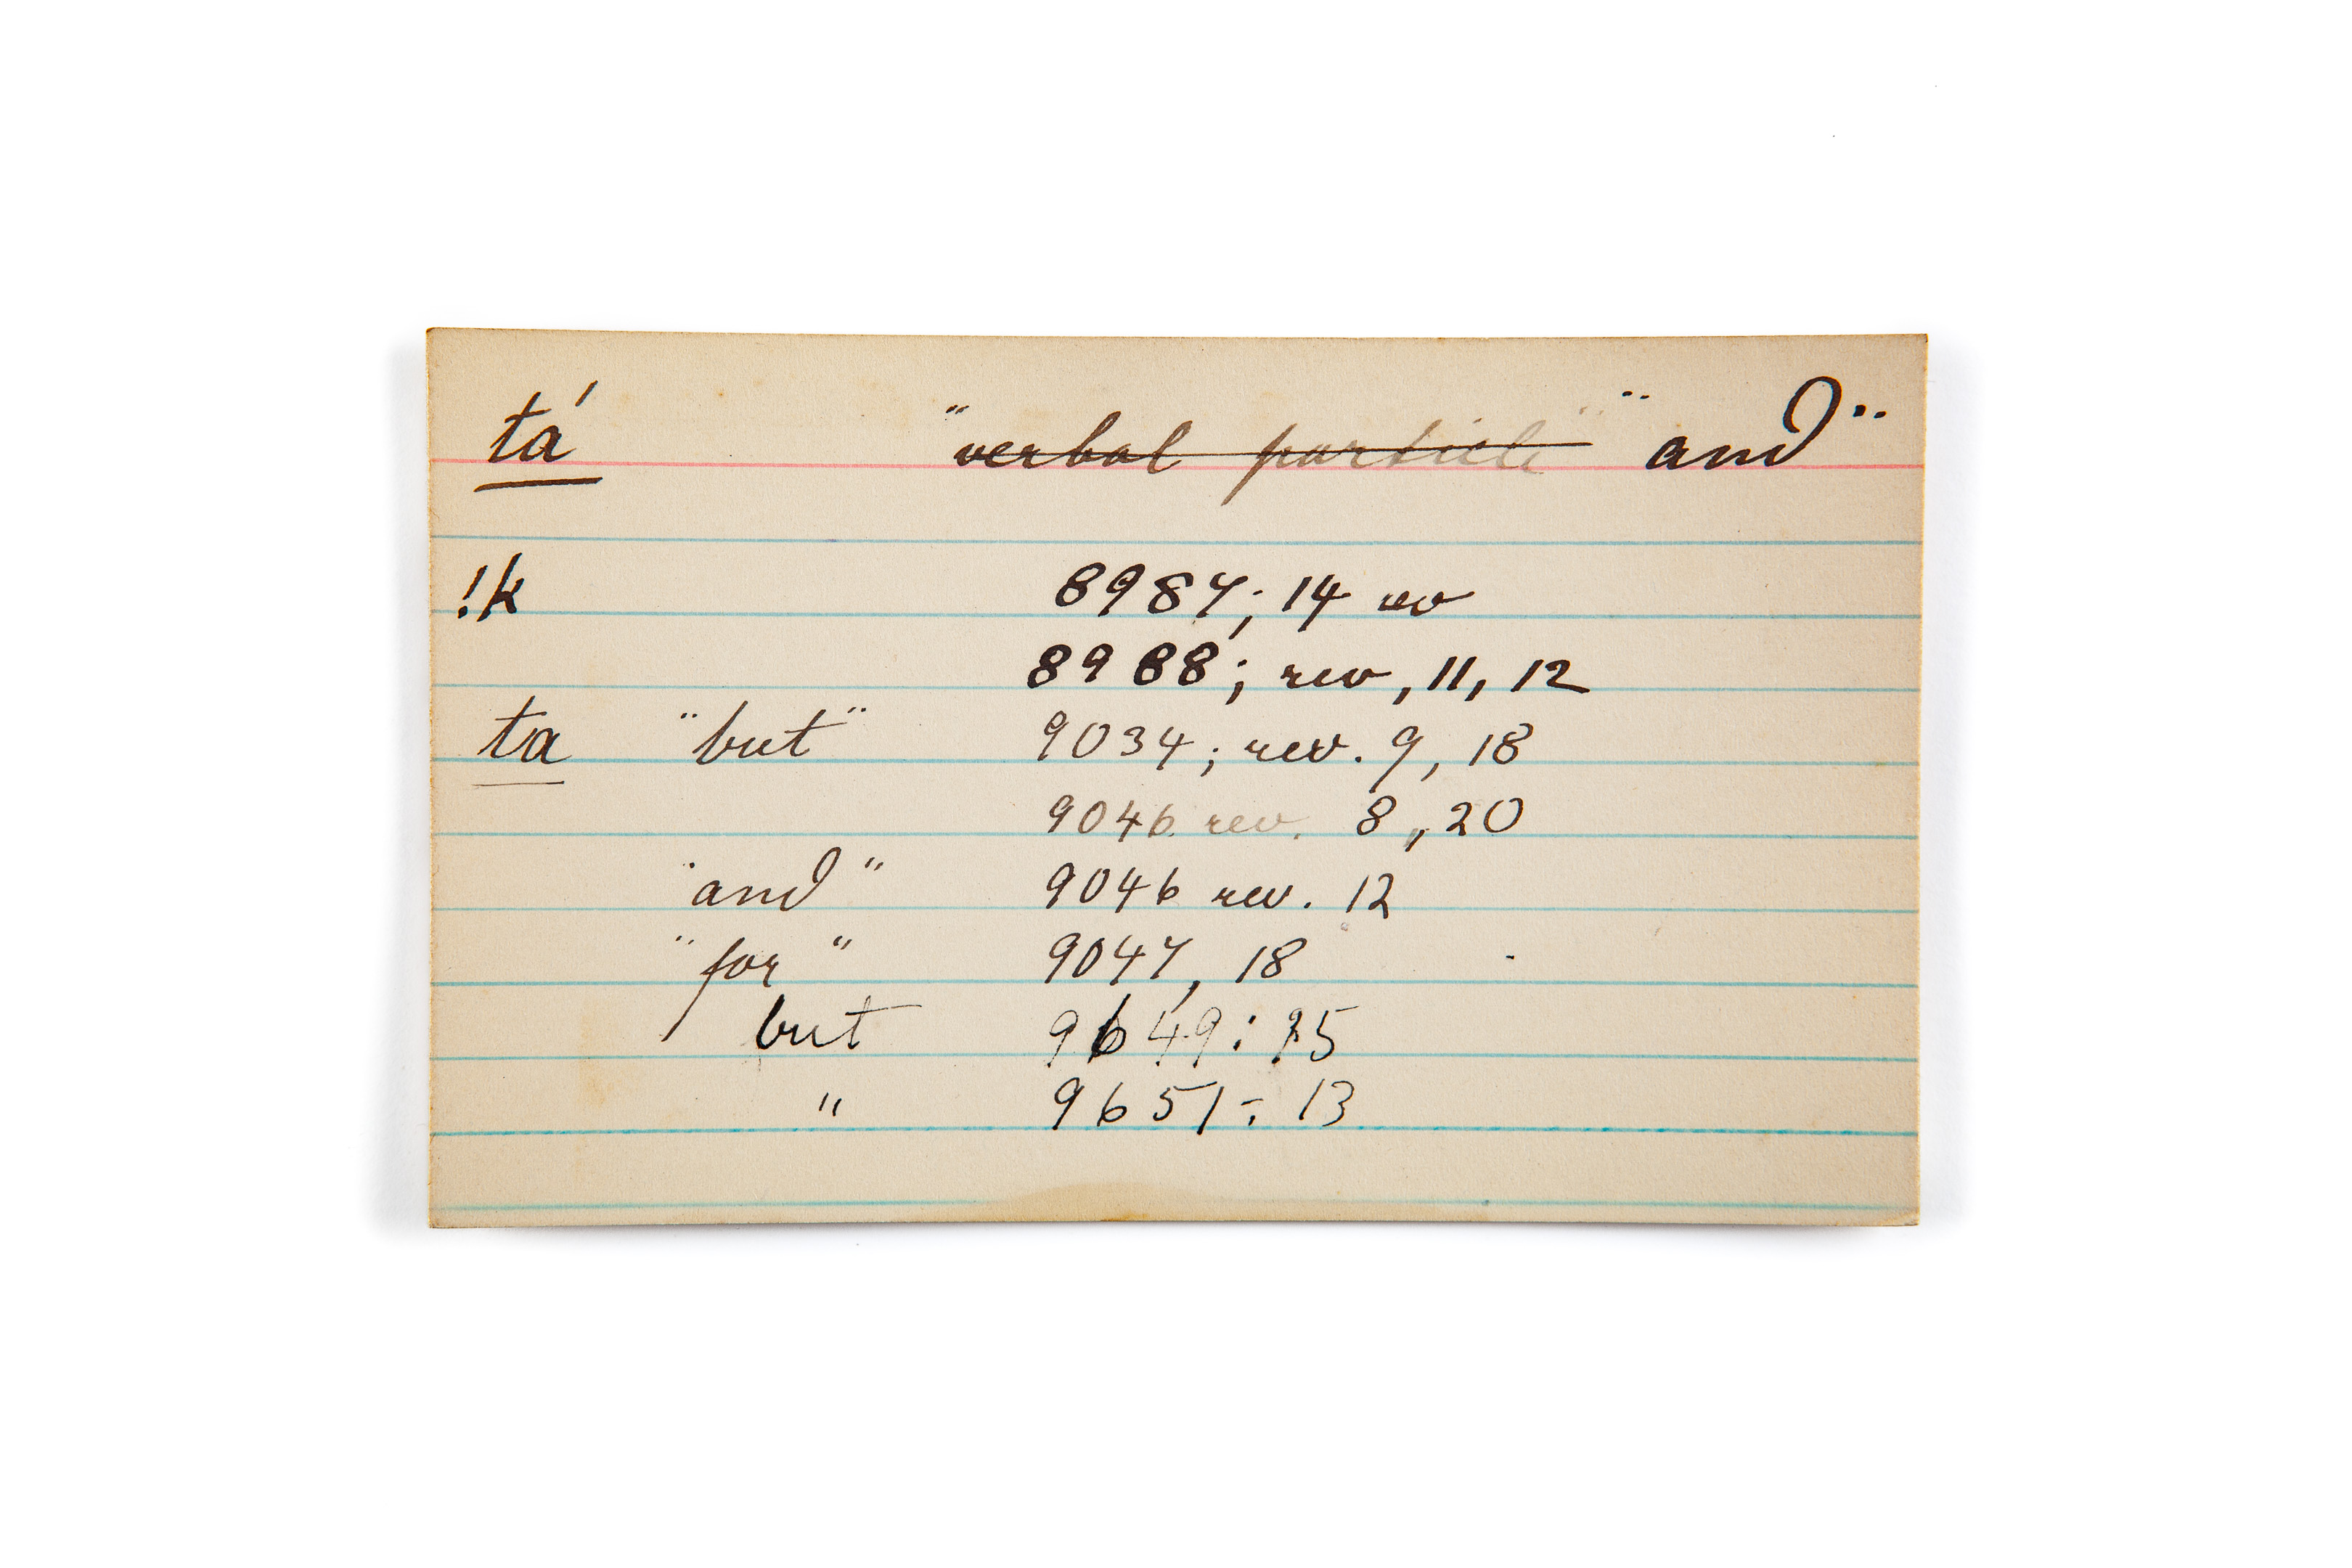 tá "verbal particle" "and"
!k 8987; 14 rev
8988; rev, 11, 12
ta "but" 9034; rev. 9, 18
9046 rev. 8,, 20
"and" 9046 rev. 12
"for" 9047, 18
but 9649: 25
" 9651: 13